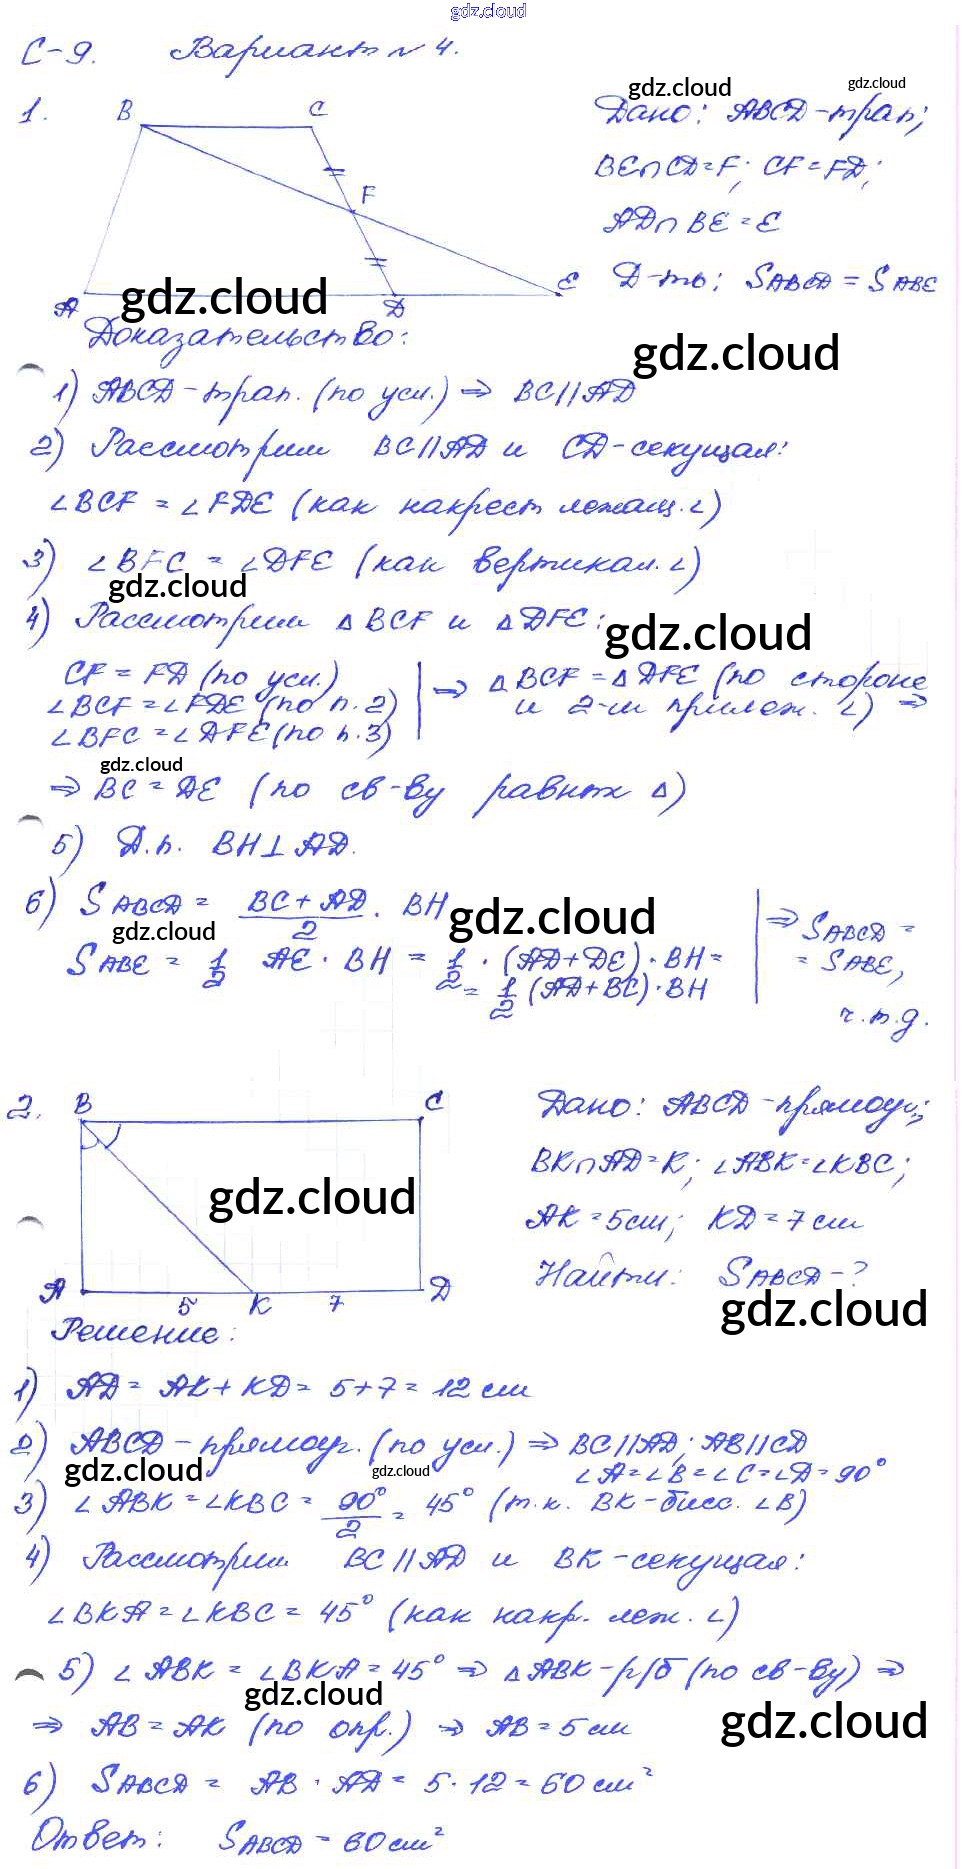 gdz.cloud
С-9. Вариант № 4.
gdz.cloud gdz.cloud
1. B C
Дано: ABCD-трап;
BE∩CD=F; CF=FD;
F
AD∩BE=E
Д-ть: SABCD = SABE
A D E
gdz.cloud
Доказательство:
gdz.cloud
1) ABCD-трап. (по усл.) ⇒ BC//AD
2) Рассмотрим BC//AD и CD-секущая:
∠BCF = ∠FDE (как накрест лежащ. ∠)
3) ∠BFC = ∠DFE (как вертикал. ∠)
gdz.cloud
4) Рассмотрим △BCF и △DFE:
gdz.cloud
CF = FD (по усл.)
∠BCF = ∠FDE (по п. 2)
∠BFC = ∠DFE (по п. 3)
⇒ △BCF = △DFE (по стороне
и 2-м прилеж. ∠) ⇒
gdz.cloud
⇒ BC = DE (по св-ву равных △)
5) Д.п. BH⊥AD.
6) SABCD = BC + AD / 2 · BH
gdz.cloud
gdz.cloud
SABE = 1/2 AE · BH = 1/2 · (AD+DE) · BH =
= 1/2 (AD+BC) · BH
⇒ SABCD =
= SABE,
ч.т.д.
2. B C
Дано: ABCD-прямоуг;
BK∩AD=K; ∠ABK=∠KBC;
gdz.cloud
AK = 5см; KD = 7 см
Найти: SABCD - ?
gdz.cloud
A 5 K 7 D
Решение:
1) AD = AK + KD = 5+7 = 12 см
2) ABCD-прямоуг. (по усл.) ⇒ BC//AD; AB//CD
∠A=∠B=∠C=∠D=90°
gdz.cloud gdz.cloud
3) ∠ABK=∠KBC = 90°/2 = 45° (т.к. BK-бисс. ∠B)
4) Рассмотрим BC//AD и BK-секущая:
∠BKA=∠KBC = 45° (как накр. леж. ∠)
5) ∠ABK = ∠BKA = 45° ⇒ △ABK-р/б (по св-ву) ⇒
gdz.cloud
⇒ AB = AK (по опр.) ⇒ AB = 5 см
gdz.cloud
6) SABCD = AB · AD = 5 · 12 = 60 см²
Ответ: SABCD = 60 см²